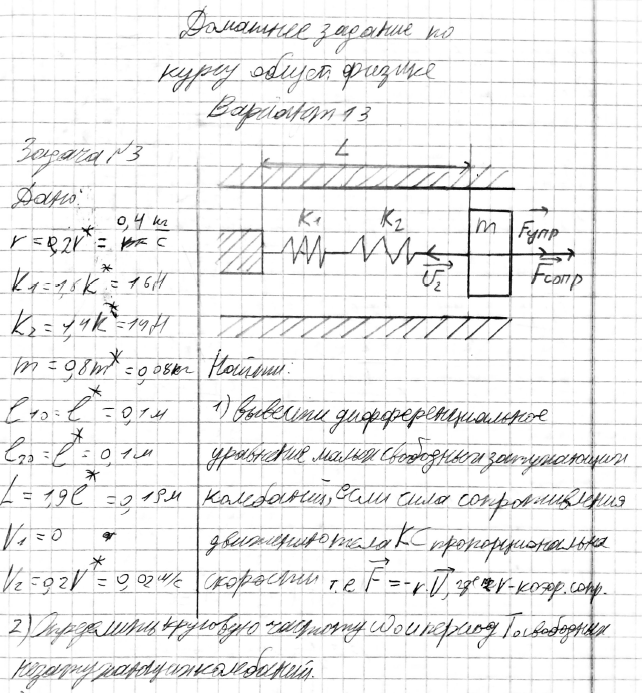 Домашнее задание по
курсу общей физике
Вариант 13
Задача №3
Дано:
r = 0,2r* = 0,4 кг/с
K1 = 1,6K* = 16Н
K2 = 1,4K* = 14Н
m = 0,8m* = 0,08кг
l10 = l* = 0,1м
l20 = l* = 0,1м
L = 1,9l* = 0,19м
V1 = 0
V2 = 0,2V* = 0,02м/с
L
K1 K2 m Fупр
U2 Fсопр
Найти:
1) вывести дифференциальное
уравнение малых свободных затухающих
колебаний, если сила сопротивления
движению тела КС пропорциональна
скорости т.е F = -r V, где r - коэф. сопр.
2) Определить круговую частоту ω0 и период T0 свободных
незатухающих колебаний.